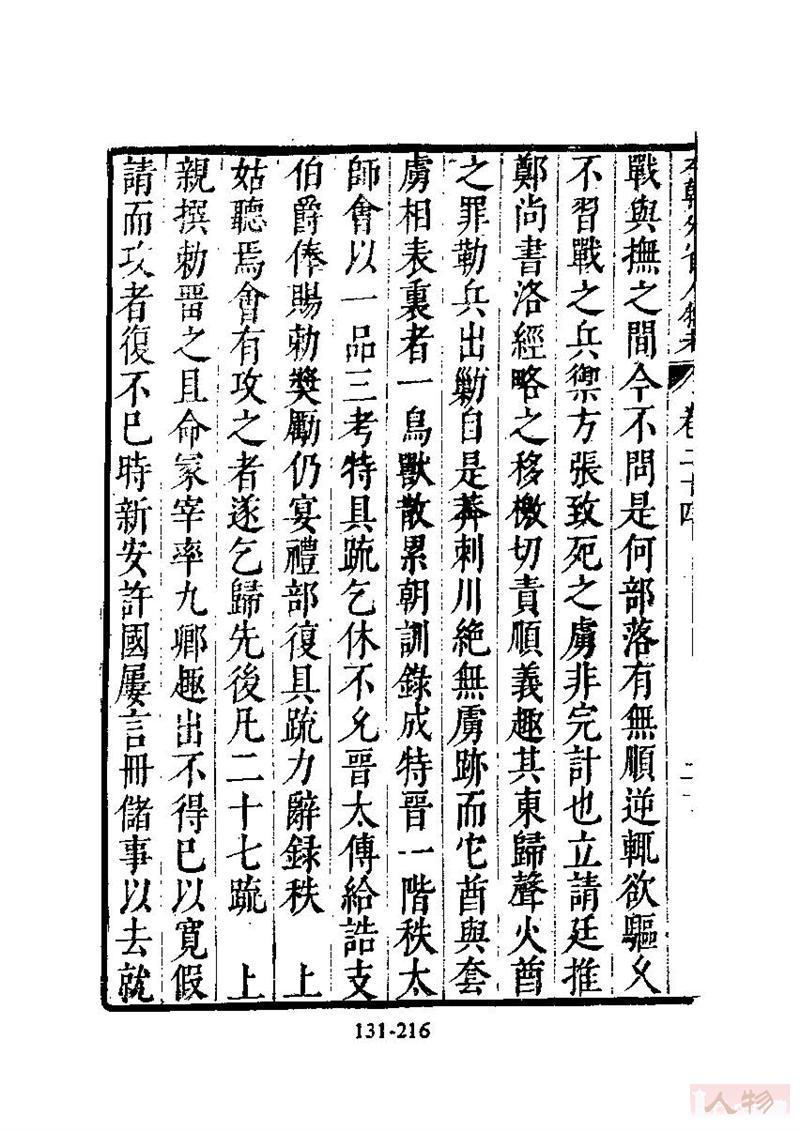 本朝分省人物考 卷二十四
戰與撫之間今不問是何部落有無順逆輒欲驅久
不習戰之兵禦方張致死之虜非完計也立請廷推
鄭尚書洛經略之移檄切責順義趣其東歸聲火酋
之罪勒兵出勦自是莽刺川絶無虜跡而它酋與套
虜相表裏者一鳥獸散累朝訓錄成特晉一階秩太
師會以一品三考特具疏乞休不允晉太傅給誥支
伯爵俸賜勅奬勵仍宴禮部復具疏力辭録秩 上
姑聽焉會有攻之者遂乞歸先後凡二十七疏 上
親撰勅畱之且命冢宰率九卿趣出不得已以寛假
請而攻者復不已時新安許國屢言冊儲事以去就
131-216
人物